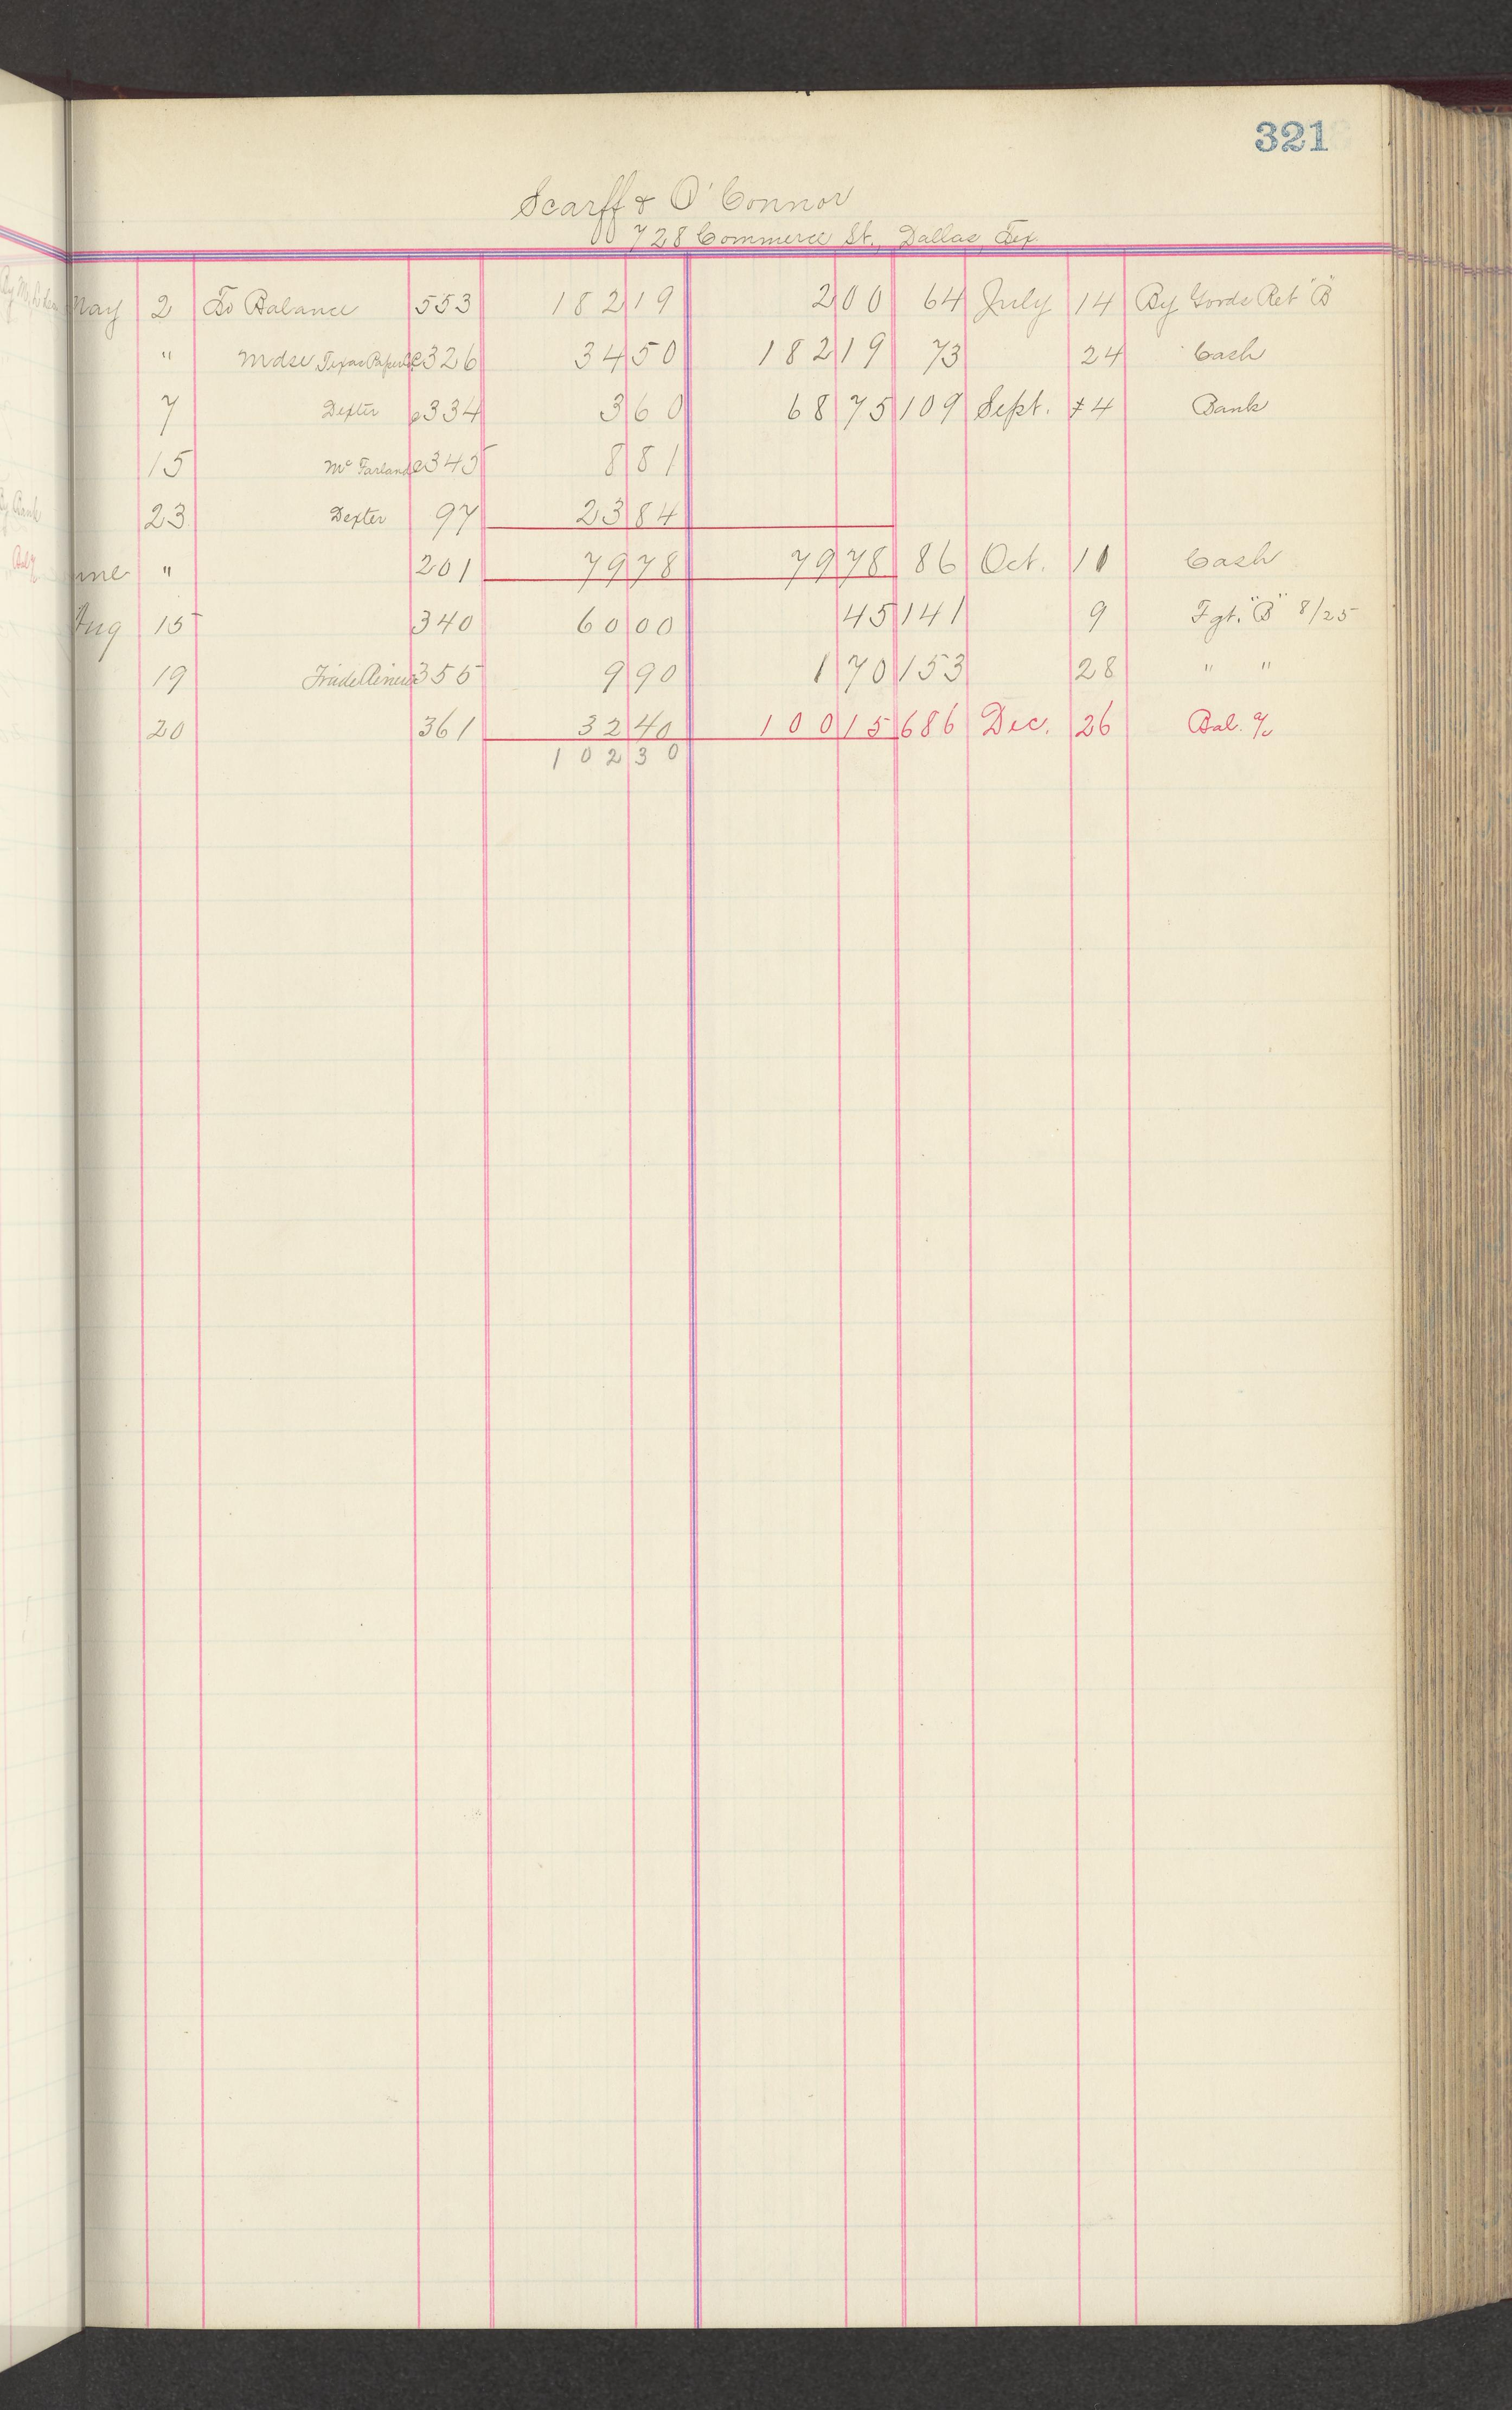 321
Scarff & O'Connor
728 Commerce St., Dallas, Tex
May 2 To Balance 553 182 19 2 00 64 July 14 By Goods Ret "B"
" Mdse. Texas Paper Co e326 34 50 182 19 73 24 Cash
7 Dexter e334 3 60 68 75 109 Sept. 4 Bank
15 McFarland e345 8 81
23 Dexter 97 23 84
une " 201 79 78 79 78 86 Oct. 11 Cash
Aug 15 340 60 00 45 141 9 Fgt. "B" 8/25
19 355 9 90 1 70 153 28 " "
20 361 32 40 100 15 686 Dec. 26 Bal. %
102 30
By Bank
Bal